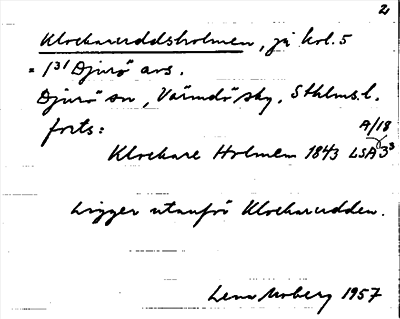 2
Klockareuddsholmen, på kol. 5
= 1³¹ Djurö avs.
Djurö sn, Värmdö sky, Sthlms. l.
forts:
A/18
Klockare Holmem 1843 LSA 3³
Ligger utanför Klockareudden.
Lena Moberg 1957